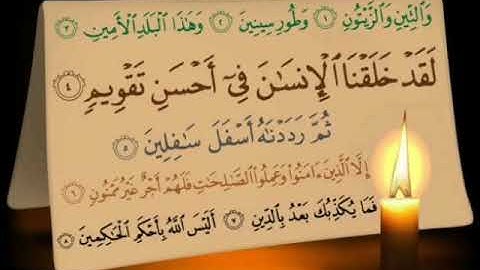 وَالتِّينِ وَالزَّيْتُونِ ١ وَطُورِ سِينِينَ ٢ وَهَٰذَا الْبَلَدِ الْأَمِينِ ٣
لَقَدْ خَلَقْنَا ٱلْإِنسَٰنَ فِىٓ أَحْسَنِ تَقْوِيمٍ ٤
ثُمَّ رَدَدْنَٰهُ أَسْفَلَ سَٰفِلِينَ ٥
إِلَّا ٱلَّذِينَ ءَامَنُوا۟ وَعَمِلُوا۟ ٱلصَّٰلِحَٰتِ فَلَهُمْ أَجْرٌ غَيْرُ مَمْنُونٍ ٦
فَمَا يُكَذِّبُكَ بَعْدُ بِالدِّينِ ٧ أَلَيْسَ اللَّهُ بِأَحْكَمِ الْحَٰكِمِينَ ٨